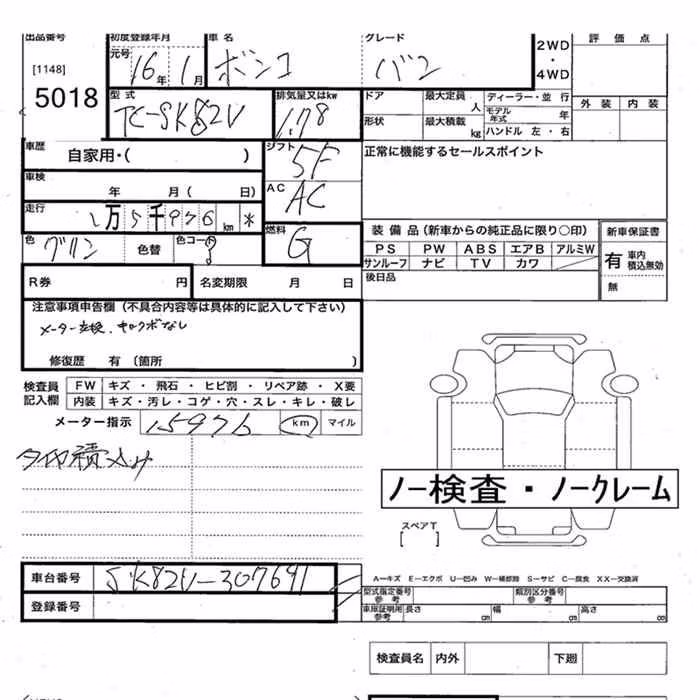 出品番号 初度登録年月 車名 グレード
[1148] 5018
元号 16年 1月 ボンゴ バン
2WD・4WD
評価点
外装 内装
型式 TC-SK82V
排気量又はkw 1.78
ドア 最大定員 人 ディーラー・並行
形状 最大積載 kg モデル年式 年
ハンドル 左・右
車歴 自家用・( )
シフト 5F
正常に機能するセールスポイント
車検 年 月( 日)
AC AC
走行 1万5千976 km *
燃料 G
装備品(新車からの純正品に限り○印)
新車保証書
PS PW ABS エアB アルミW
サンルーフ ナビ TV カワ
有 車内積込無効
無
色 グリン 色替 色コード
後日品
R券 円 名変期限 月 日
注意事項申告欄(不具合内容等は具体的に記入して下さい)
メーター交換、キロクボなし
修復歴 有(箇所 )
検査員記入欄
FW キズ・飛石・ヒビ割・リペア跡・X要
内装 キズ・汚レ・コゲ・穴・スレ・キレ・破レ
メーター指示 15976 km マイル
積込み
ノー検査・ノークレーム
スペアT
[ ]
車台番号 SK82V-307641
登録番号
A―キズ E―エクボ U―凹み W―補修跡 S―サビ C―腐食 XX―交換済
型式指定番号 参考 類別区分番号 参考
車庫証明用 参考 長さ cm 幅 cm 高さ cm
検査員名 内外 下廻